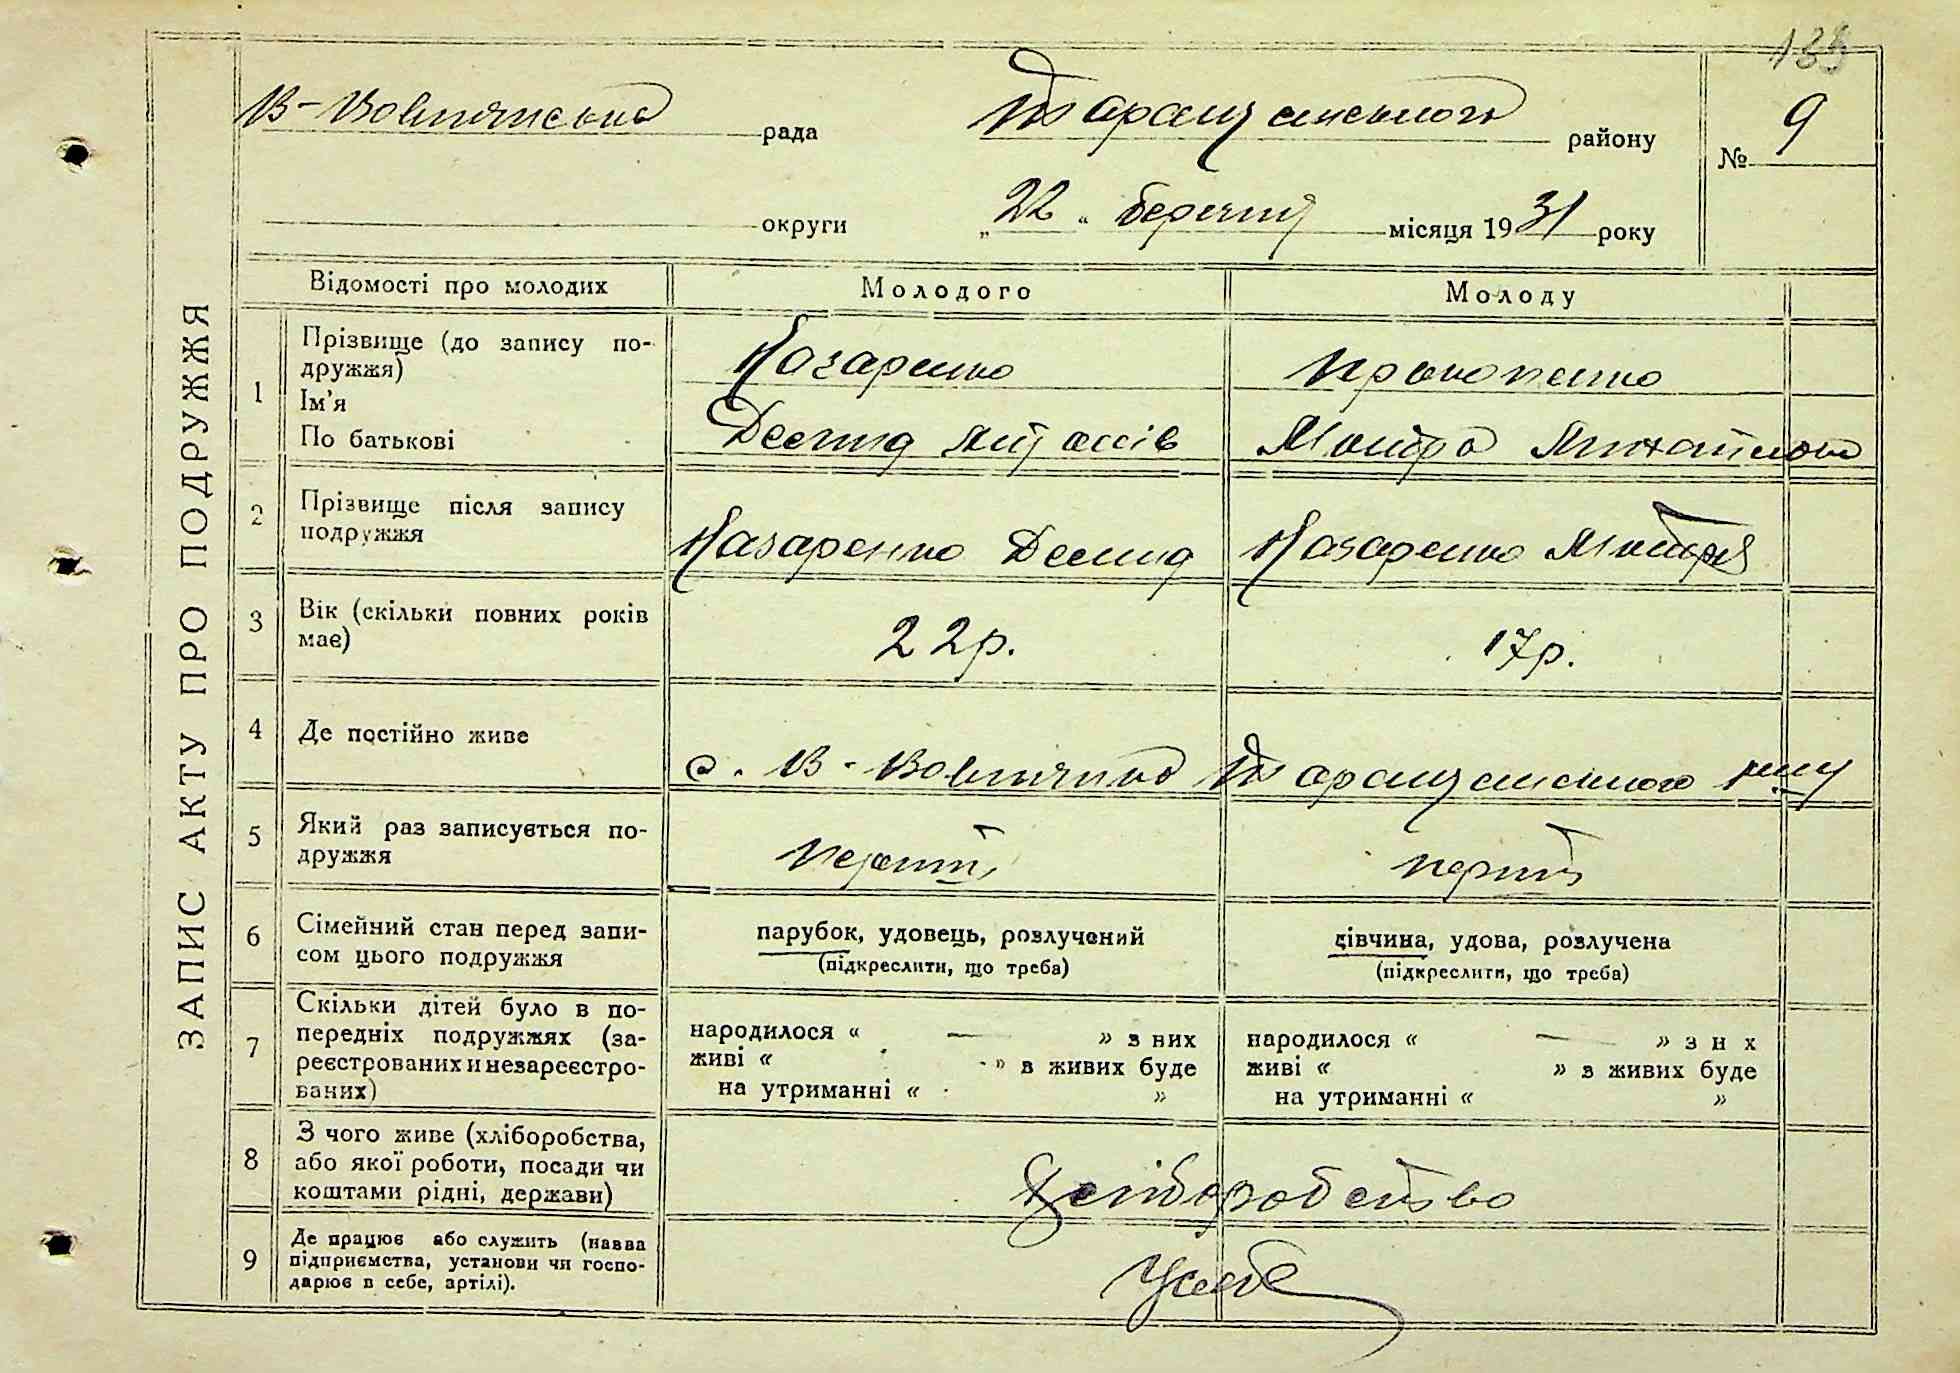 139
В-Вовнянська рада Таращанського району № 9
округи „22“ березня місяця 1931 року
ЗАПИС АКТУ ПРО ПОДРУЖЖЯ
Відомості про молодих Молодого Молоду
1 Прізвище (до запису по-
дружжя)
Ім'я
По батькові
Назаренко Прокопенко
Демид Мотра Михайлова
2 Прізвище після запису
подружжя
Назаренко Демид Назаренко Мотря
3 Вік (скільки повних років
має)
22р. 17р.
4 Де постійно живе
с. В-Вовнянка Таращанського р-ну
5 Який раз записується по-
дружжя
перший перший
6 Сімейний стан перед запи-
сом цього подружжя
парубок, удовець, розлучений
(підкреслити, що треба)
дівчина, удова, розлучена
(підкреслити, що треба)
7 Скільки дітей було в по-
передніх подружжях (за-
реєстрованих и незареєстро-
ваних)
народилося “ — ” з них
живі “ - ” в живих буде
на утриманні “ ”
народилося “ — ” з н х
живі “ ” в живих буде
на утриманні “ ”
8 З чого живе (хліборобства,
або якої роботи, посади чи
коштами рідні, держави)
Хліборобство
9 Де працює або служить (назва
підприємства, установи чи госпо-
дарює в себе, артілі).
У себе